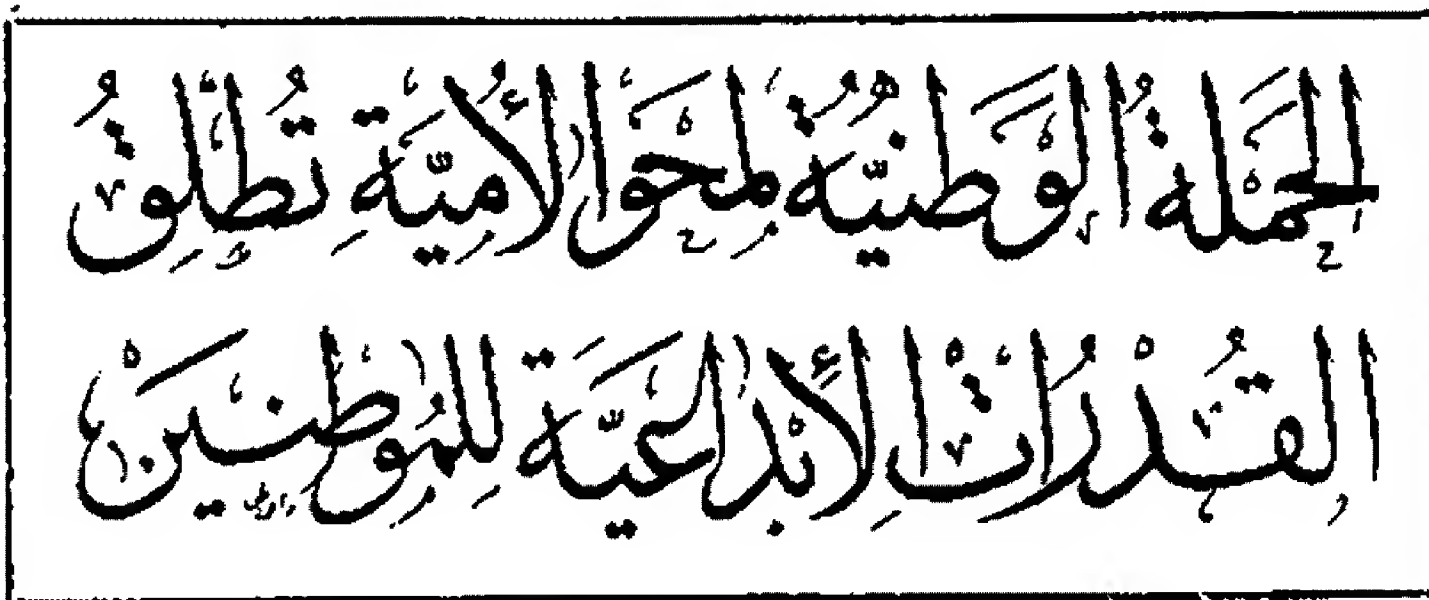 الحَملَةُ الوَطنيّةُ لِمحْوِ الأُمِيّةِ تُطلِقُ
القُدْرَاتِ الأِبْداعيّة لِلمُوَطِنينَ